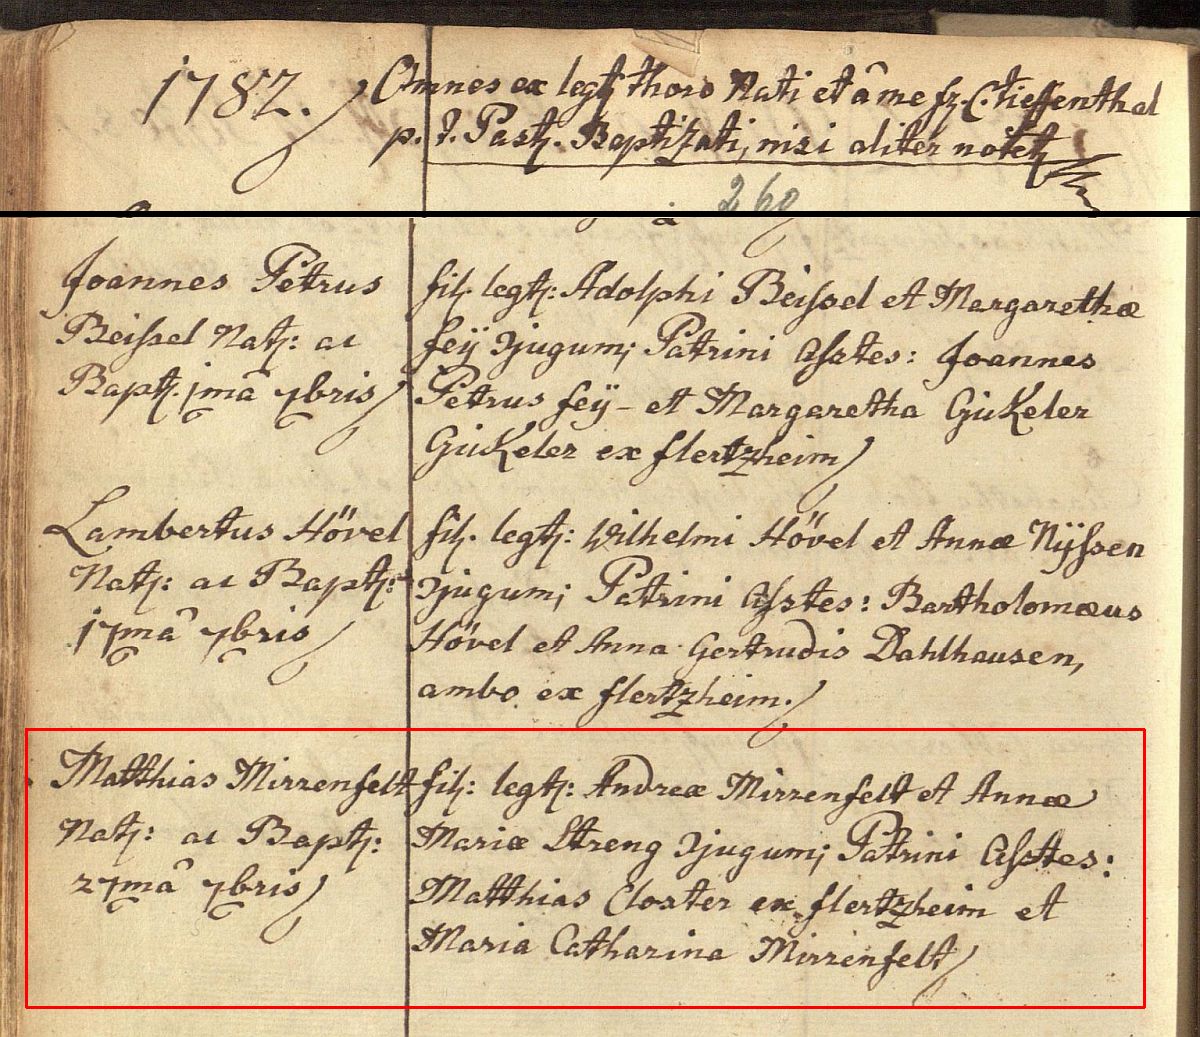 1782. Omnes ex legtj thoro Nati et â me fr. C. tieffenthal
p. t. Pastj. Baptizati, nisi aliter notetj
260
Joannes Petrus
Beissel Natj: ac
Baptj. jmâ 7bris
filj. legtj: Adolphi Beissel et Margarethæ
feÿ Jjugum; Patrini Asstes: Joannes
Petrus feÿ - et Margaretha GuKeler
GuKeler ex flertzheim
Lambertus Hövel
Natj: ac Baptj:
17mâ 7bris
filj. legtj: Wilhelmi Hövel et Annæ Nÿssen
Jjugum; Patrini Asstes: Bartholomæus
Hövel et Anna Gertrudis Dahlhausen,
ambo ex flertzheim.
Matthias Mirrenfelt
Natj: ac Baptj:
27mâ 7bris
filj: legtj: Andreæ Mirrenfelt et Annæ
Mariæ Streng Jjugum; Patrini Asstes:
Matthias Closter ex flertzheim et
Maria Catharina Mirrenfelt